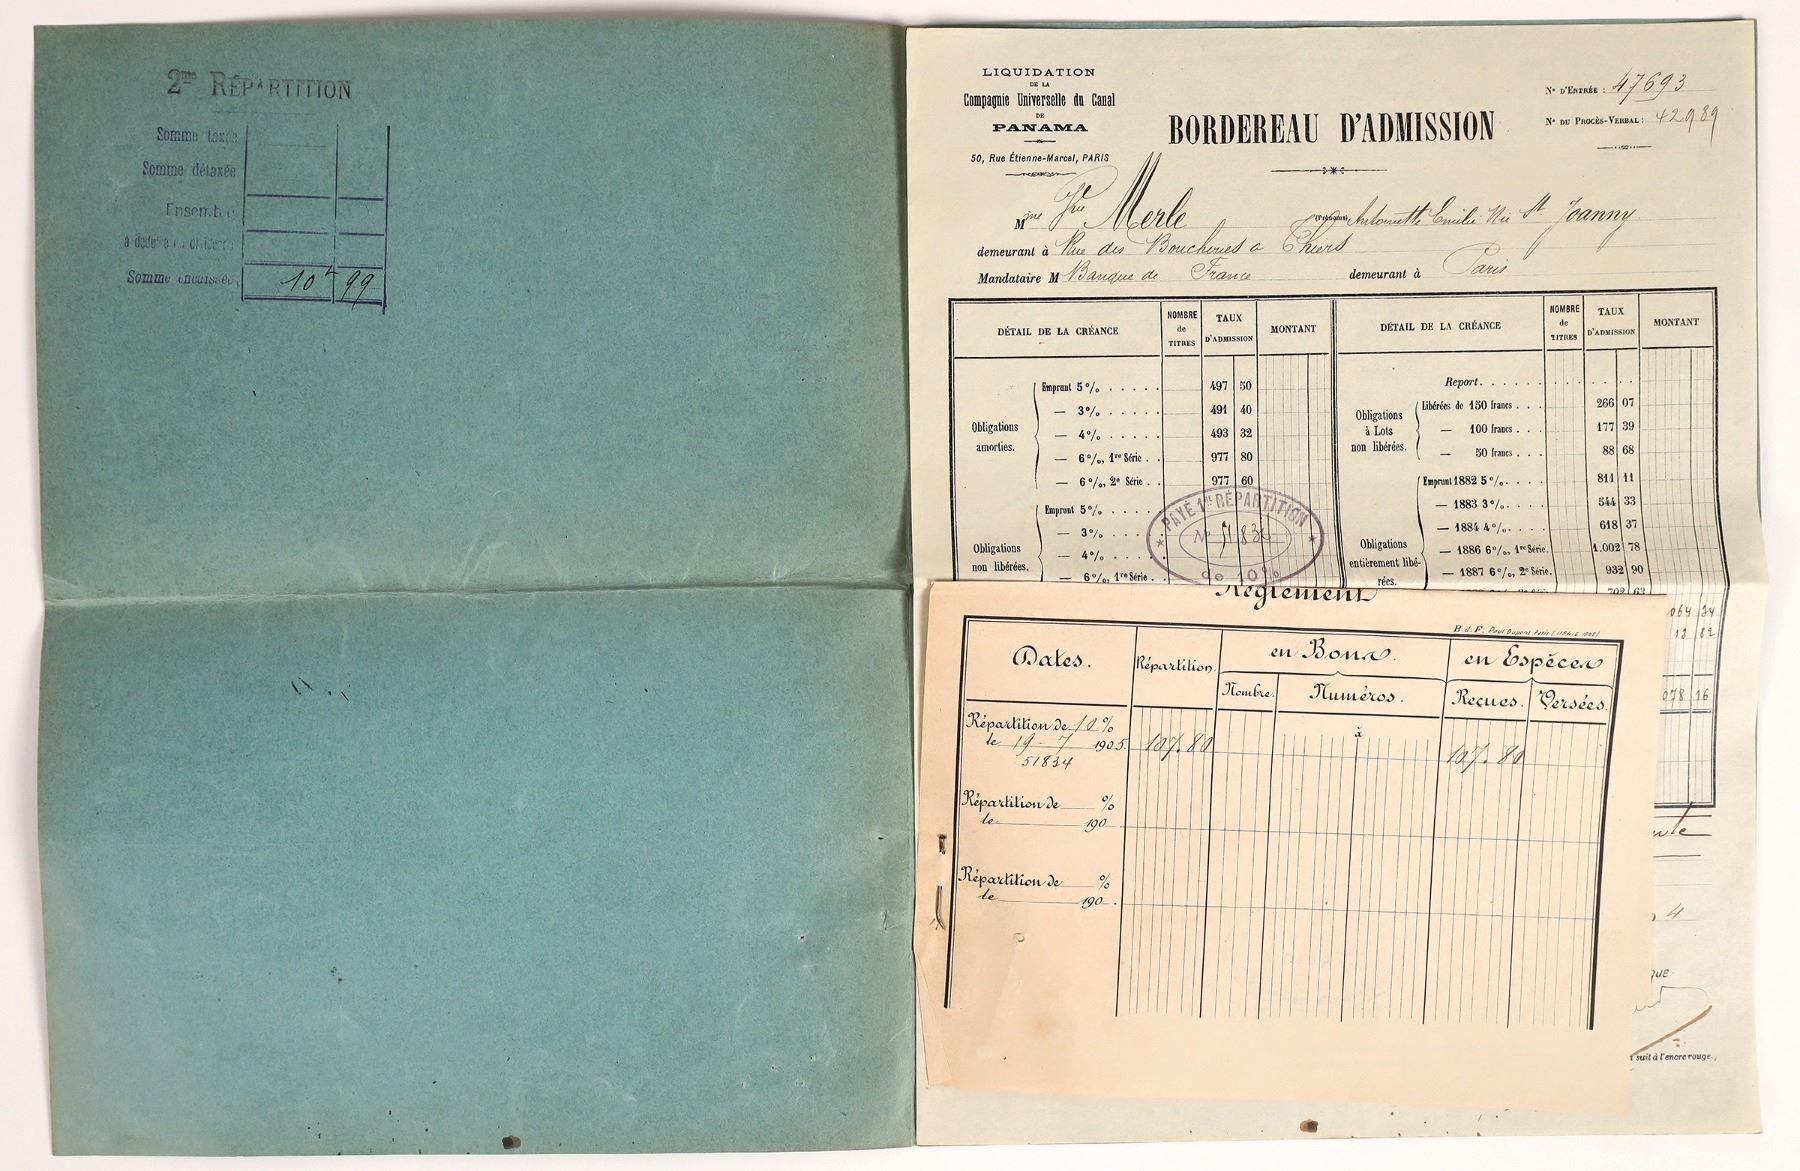 2me RÉPARTITION
Somme taxée
Somme détaxée
Ensemble
à déduire
Somme encaissée, 10 99
LIQUIDATION
DE LA
Compagnie Universelle du Canal
DE
PANAMA
50, Rue Étienne-Marcel, PARIS
BORDEREAU D'ADMISSION
N° D'ENTRÉE : 47693
N° DU PROCÈS-VERBAL : 42989
Mme Vve Merle (Prénoms) Antoinette Emilie Née St Joanny
demeurant à Rue des Boucheries a Thiers
Mandataire M Banque de France demeurant à Paris
DÉTAIL DE LA CRÉANCE
NOMBRE de TITRES
TAUX D'ADMISSION
MONTANT
Obligations amorties.
Emprunt 5 % . . . . . 497 50
— 3 % . . . . . 491 40
— 4 % . . . . . 493 32
— 6 %, 1re Série . . 977 80
— 6 %, 2e Série . . 977 60
Obligations non libérées.
Emprunt 5 % . . . . .
— 3 % . . . . .
— 4 % . . . . .
— 6 %, 1re Série . .
PAYÉ 1re RÉPARTITION
N° 51834
de 10 %
DÉTAIL DE LA CRÉANCE
NOMBRE de TITRES
TAUX D'ADMISSION
MONTANT
Report . . . . . .
Obligations à Lots non libérées.
Libérées de 150 francs . . . 266 07
— 100 francs . . . 177 39
— 50 francs . . . 88 68
Obligations entièrement libérées.
Emprunt 1882 5 % . . . . 811 11
— 1883 3 % . . . . 544 33
— 1884 4 % . . . . 618 37
— 1886 6 %, 1re Série. 1.002 78
— 1887 6 %, 2e Série. 932 90
702 63
064 34
13 82
078 16
Règlement
B. d. F. Paul Dupont Paris
Dates.
Répartition.
en Bons.
en Espèces
Nombre.
Numéros.
Reçues.
Versées.
à
Répartition de 10 %
le 19 - 7 1905 107.80 107.80
51834
Répartition de %
le 190
Répartition de %
le 190 .
4
que
suit à l'encre rouge.